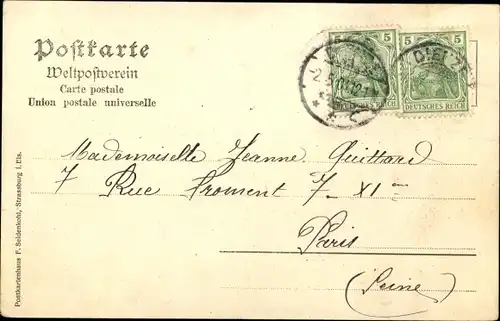 Postkarte
Weltpostverein
Carte postale
Union postale universelle
5 5
5 5
DEUTSCHES REICH
DEUTSCHES REICH
DIEUZE
Mademoiselle Jeanne Guittard
7 Rue Froment 7 - XI me
Paris
(Seine)
Postkartenhaus F. Seidenkohl, Strassburg i. Els.